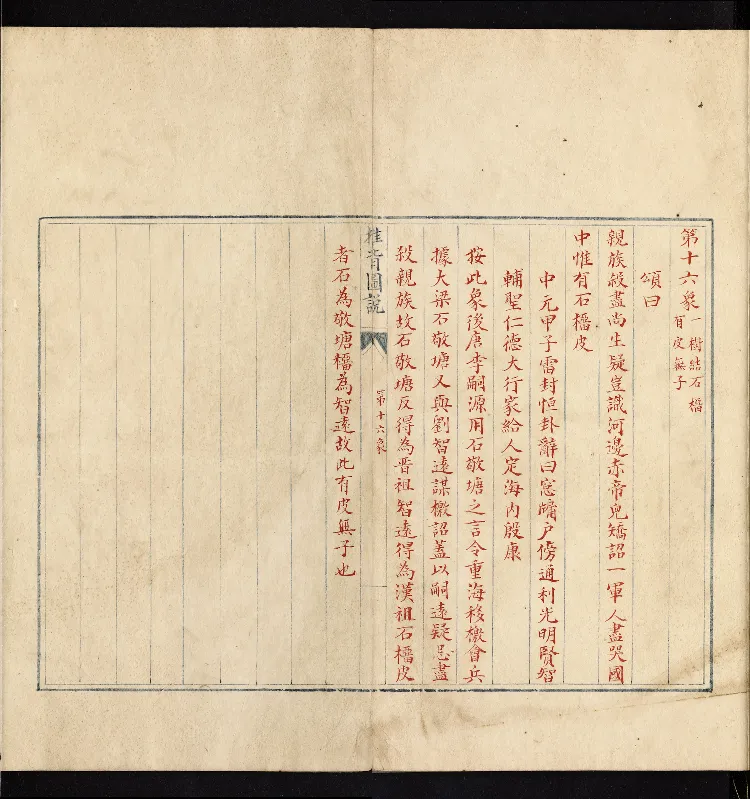 第十六象一樹結石橊
有皮無子
頌曰
親族殺盡尚生疑豈識河邊赤帝兒矯詔一軍人盡哭國
中惟有石橊皮
中元甲子雷封恒卦辭曰窓牖户傍通利光明賢智
輔聖仁德大行家給人定海内殷康
按此象後唐李嗣源用石敬塘之言令重海移檄會兵
據大梁石敬塘又與劉智遠謀檄詔蓋以嗣遠疑忌盡
殺親族故石敬塘反得為晋祖智遠得為漢祖石橊皮
推背圖説
第十六象
者石為敬塘橊為智遠故此有皮無子也